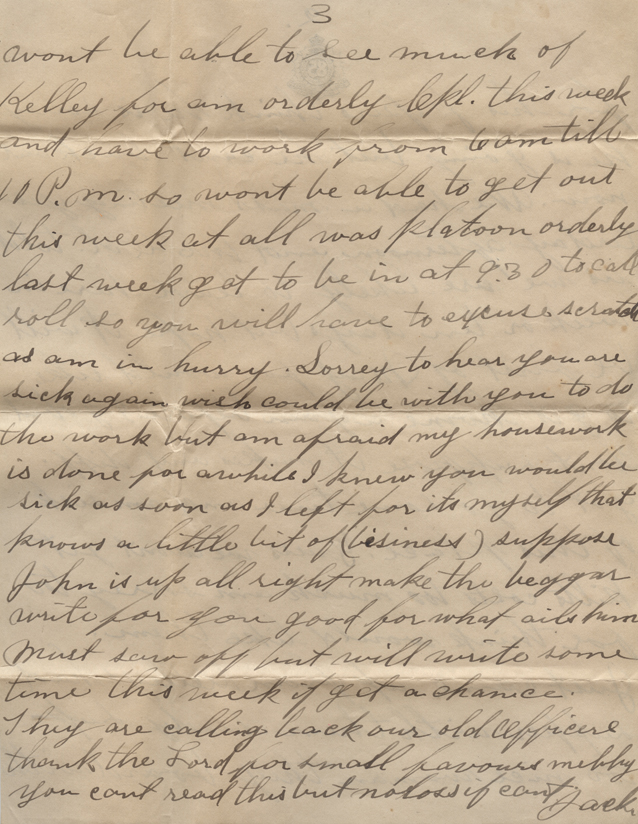 3
wont be able to see much of
Kelley for am orderly Cpl. this week
and have to work from 6 am till
10 P.m. so wont be able to get out
this week at all was platoon orderly
last week got to be in at 9.30 to call
roll so you will have to excuse scratch
as am in hurry. Sorrey to hear you are
sick again wish could be with you to do
the work but am afraid my housework
is done for awhile I knew you would be
sick as soon as I left for its myself that
knows a little bit of (bisiness) suppose
John is up all right make the beggar
write for you good for what ails him
Must saw off but will write some
time this week if get a chance.
They are calling back our old officers
thank the Lord for small favours mebby
you cant read this but no loss if cant Jack